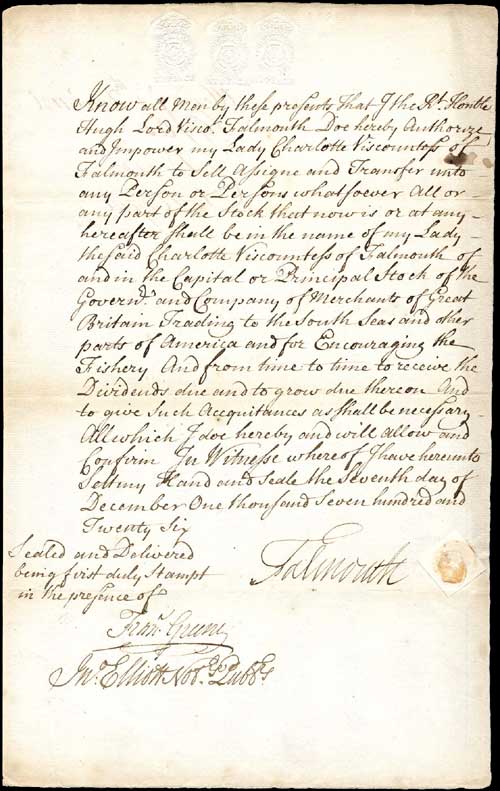 Know all Men by these presents That I the Rt. Honble
Hugh Lord Visco.t Falmouth Doe hereby Authorize
and Impower my Lady Charlotte Viscountess of
Falmouth to Sell Assigne and Transfer unto
any Person or Persons whatsoever All or
any part of the Stock that now is or at any
hereafter shall be in the name of my Lady
the said Charlotte Viscountess of Falmouth of
and in the Capital or Principal Stock of the
Govern.r and Company of Merchants of Great
Britain Trading to the South Seas and other
parts of America and for Encouraging the
Fishery And from time to time to receive the
Dividends due and to grow due thereon And
to give Such Acquittances as shall be necessary
All which I doe hereby and will allow and
Confirm In Witnesse whereof I have hereunto
Set my Hand and Seale the Seventh day of
December One thousand Seven hundred and
Twenty Six
Sealed and Delivered
being first duly Stampt
in the presence of
Falmouth
Fran.
Jn.o Elliott Not.